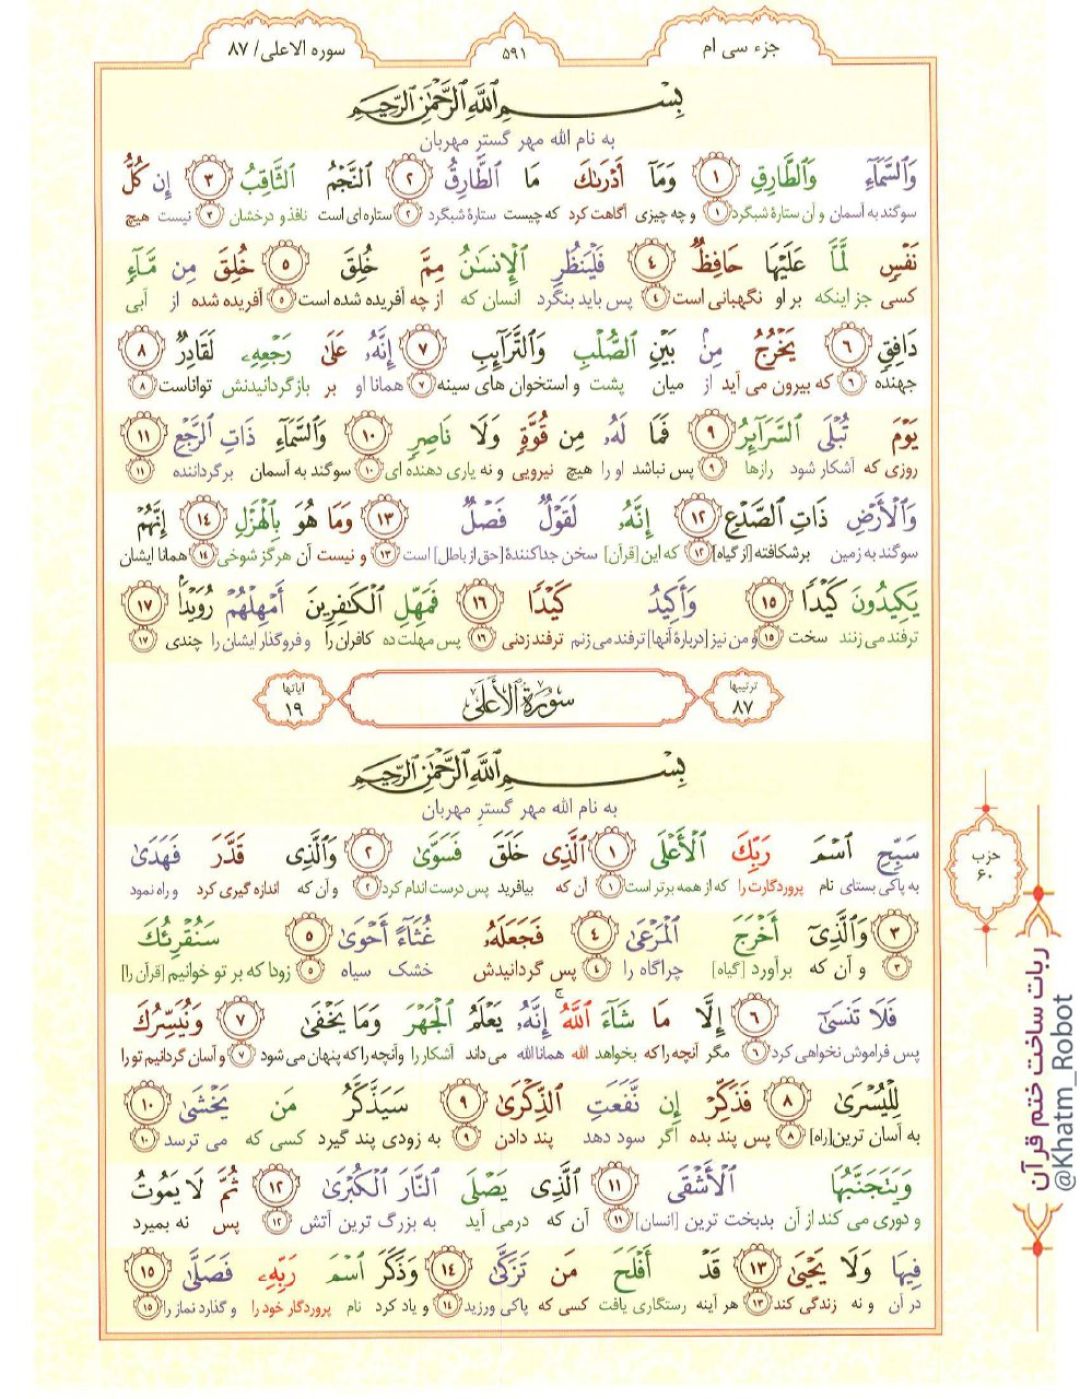 جزء سی ام
۵۹۱
سوره الاعلی/ ۸۷
بِسْمِ ٱللَّهِ ٱلرَّحْمَٰنِ ٱلرَّحِيمِ
به نام الله مهر گستر مهربان
وَٱلسَّمَآءِ وَٱلطَّارِقِ ۱ وَمَآ أَدْرَىٰكَ مَا ٱلطَّارِقُ ۲ ٱلنَّجْمُ ٱلثَّاقِبُ ۳ إِن كُلُّ
سوگند به آسمان و آن ستارهٔ شبگرد ۱ و چه چیزی آگاهت کرد که چیست ستارهٔ شبگرد ۲ ستاره ای است نافذ و درخشان ۳ نیست هیچ
نَفْسٍ لَّمَّا عَلَيْهَا حَافِظٌ ۴ فَلْيَنظُرِ ٱلْإِنسَٰنُ مِمَّ خُلِقَ ۵ خُلِقَ مِن مَّآءٍ
کسی جز اینکه بر او نگهبانی است ۴ پس باید بنگرد انسان که از چه آفریده شده است ۵ آفریده شده از آبی
دَافِقٍ ۶ يَخْرُجُ مِنۢ بَيْنِ ٱلصُّلْبِ وَٱلتَّرَآئِبِ ۷ إِنَّهُۥ عَلَىٰ رَجْعِهِۦ لَقَادِرٌ ۸
جهنده ۶ که بیرون می آید از میان پشت و استخوان های سینه ۷ همانا او بر بازگردانیدنش تواناست ۸
يَوْمَ تُبْلَى ٱلسَّرَآئِرُ ۹ فَمَا لَهُۥ مِن قُوَّةٍ وَلَا نَاصِرٍ ۱۰ وَٱلسَّمَآءِ ذَاتِ ٱلرَّجْعِ ۱۱
روزی که آشکار شود رازها ۹ پس نباشد او را هیچ نیرویی و نه یاری دهنده ای ۱۰ سوگند به آسمان برگرداننده ۱۱
وَٱلْأَرْضِ ذَاتِ ٱلصَّدْعِ ۱۲ إِنَّهُۥ لَقَوْلٌ فَصْلٌ ۱۳ وَمَا هُوَ بِٱلْهَزْلِ ۱۴ إِنَّهُمْ
سوگند به زمین برشکافته [از گیاه] ۱۲ که این [قرآن] سخن جداکنندهٔ [حق از باطل] است ۱۳ و نیست آن هرگز شوخی ۱۴ همانا ایشان
يَكِيدُونَ كَيْدًا ۱۵ وَأَكِيدُ كَيْدًا ۱۶ فَمَهِّلِ ٱلْكَٰفِرِينَ أَمْهِلْهُمْ رُوَيْدًۢا ۱۷
ترفند می زنند سخت ۱۵ و من نیز [دربارهٔ آنها] ترفند می زنم ترفند زدنی ۱۶ پس مهلت ده کافران را و فروگذار ایشان را چندی ۱۷
ترتیبها ۸۷
سُورَةُ ٱلْأَعْلَىٰ
آیاتها ۱۹
بِسْمِ ٱللَّهِ ٱلرَّحْمَٰنِ ٱلرَّحِيمِ
به نام الله مهر گستر مهربان
سَبِّحِ ٱسْمَ رَبِّكَ ٱلْأَعْلَى ۱ ٱلَّذِى خَلَقَ فَسَوَّىٰ ۲ وَٱلَّذِى قَدَّرَ فَهَدَىٰ
به پاکی بستای نام پروردگارت را که از همه برتر است ۱ آن که بیافرید پس درست اندام کرد ۲ و آن که اندازه گیری کرد و راه نمود
۳ وَٱلَّذِىٓ أَخْرَجَ ٱلْمَرْعَىٰ ۴ فَجَعَلَهُۥ غُثَآءً أَحْوَىٰ ۵ سَنُقْرِئُكَ
۳ و آن که برآورد [گیاه] چراگاه را ۴ پس گردانیدش خشک سیاه ۵ زودا که بر تو خوانیم [قرآن را]
فَلَا تَنسَىٰٓ ۶ إِلَّا مَا شَآءَ ٱللَّهُ ۚ إِنَّهُۥ يَعْلَمُ ٱلْجَهْرَ وَمَا يَخْفَىٰ ۷ وَنُيَسِّرُكَ
پس فراموش نخواهی کرد ۶ مگر آنچه را که بخواهد الله همانا الله می داند آشکار را و آنچه را که پنهان می شود ۷ و آسان گردانیم تو را
لِلْيُسْرَىٰ ۸ فَذَكِّرْ إِن نَّفَعَتِ ٱلذِّكْرَىٰ ۹ سَيَذَّكَّرُ مَن يَخْشَىٰ ۱۰
به آسان ترین [راه] ۸ پس پند بده اگر سود دهد پند دادن ۹ به زودی پند گیرد کسی که می ترسد ۱۰
وَيَتَجَنَّبُهَا ٱلْأَشْقَى ۱۱ ٱلَّذِى يَصْلَى ٱلنَّارَ ٱلْكُبْرَىٰ ۱۲ ثُمَّ لَا يَمُوتُ
و دوری می کند از آن بدبخت ترین [انسان] ۱۱ آن که درمی آید به بزرگ ترین آتش ۱۲ پس نه بمیرد
فِيهَا وَلَا يَحْيَىٰ ۱۳ قَدْ أَفْلَحَ مَن تَزَكَّىٰ ۱۴ وَذَكَرَ ٱسْمَ رَبِّهِۦ فَصَلَّىٰ ۱۵
در آن و نه زندگی کند ۱۳ هر آینه رستگاری یافت کسی که پاکی ورزید ۱۴ و یاد کرد نام پروردگار خود را و گذارد نماز را ۱۵
حزب
۶۰
ربات ساخت ختم قرآن
@Khatm_Robot